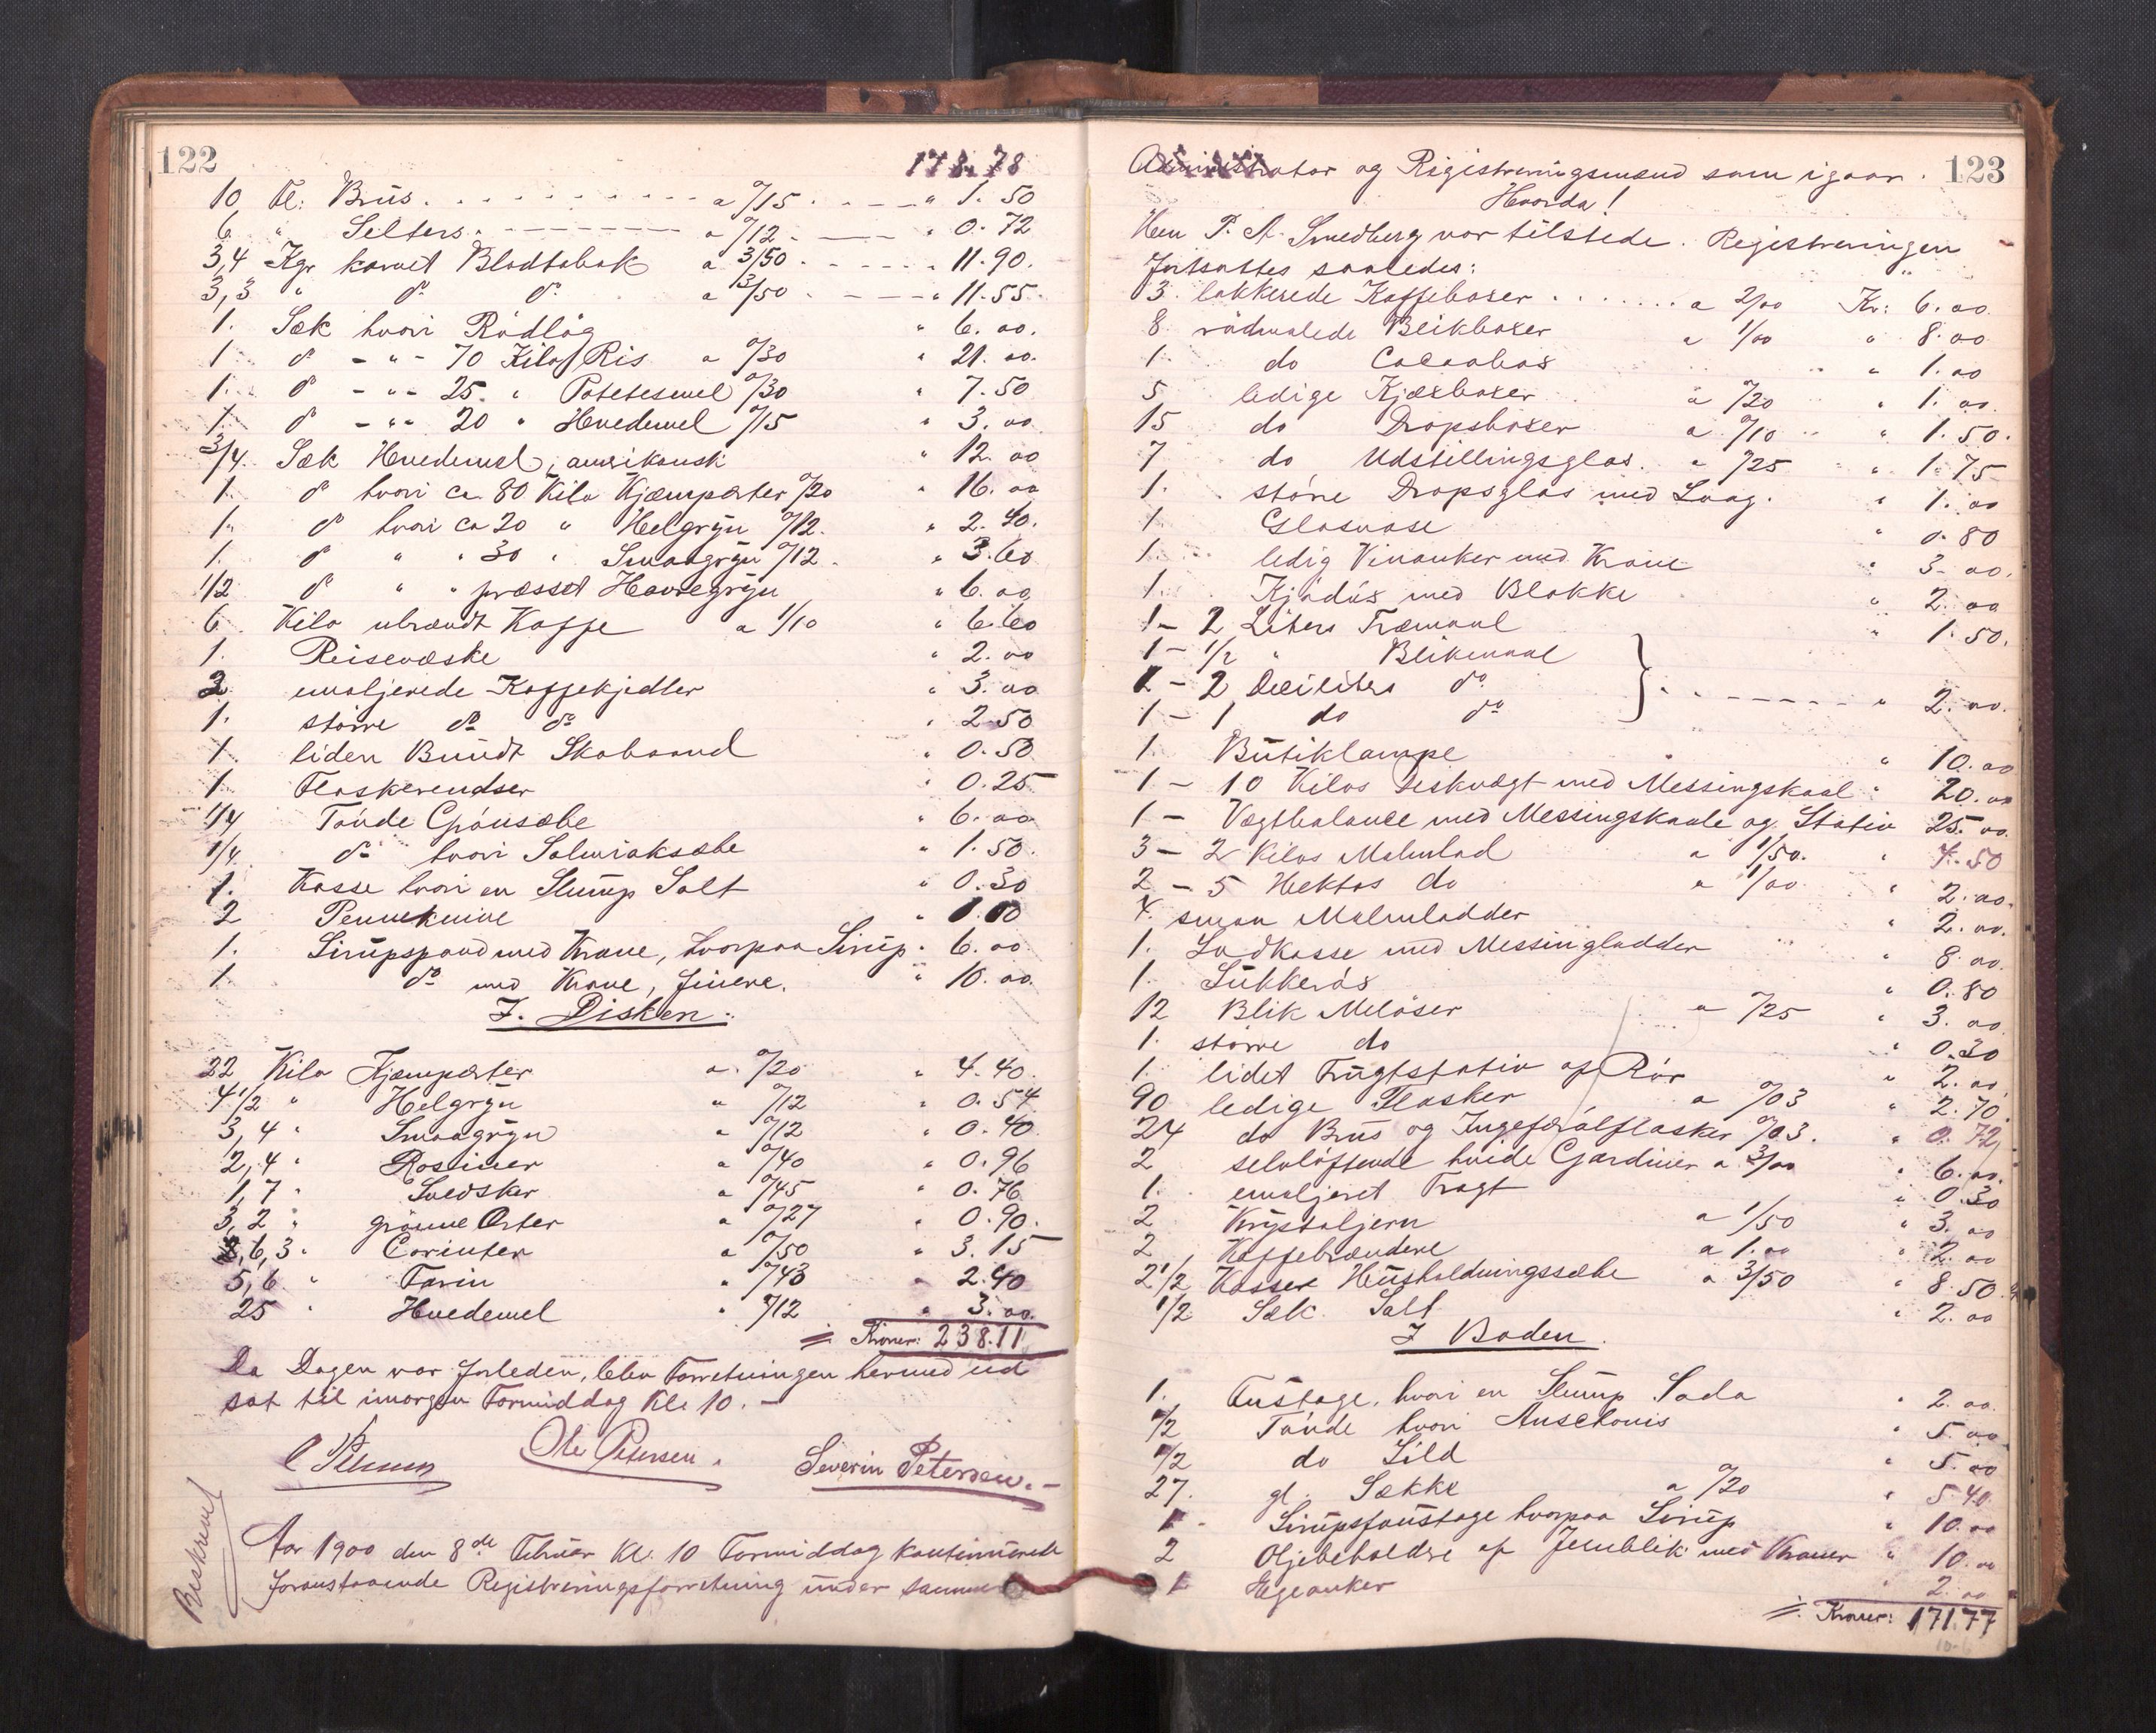 122
173.78
10 Fl: Brus a 0/15 " 1.50
6 " Selters a 0/12 " 0.72
3,4 Kgr karvet Bladtobak a 3/50 11.90.
3,3 " do do a 3/50 " 11.55
1. Sæk hvori Rödlög " 6.00.
1 do - " - 70 Kilo Ris a 0/30 " 21.00.
1. do - " - 25 " Potetesmel 0/30 " 7.50
1. do - " - 20 " Hvedemel 0/15 " 3.00
3/4. Sæk Hvedemel, amerikansk " 12.00
1. do hvori ca. 80 Kilo Kjæmperter 0/20 " 16.00
1. do hvori ca 20 " Helgryn 0/12. " 2.40.
1. do " " 30 " Smaagryn 0/12. " 3.60
1/2 do " " presset Havregryn " 6.00
6 Kilo ubrændt Kaffe a 1/10 " 6.60
1. Reisevæske " 2.00
2 emaljerede Kaffekjedler " 3.00
1. större do do " 2.50
1. liden Bundt Skobaand " 0.50
1. Flaskerendser " 0.25
1/4 Tönde Grönsæbe " 6.00
1/4 do hvori Salmiaksæbe " 1.50
1. Kasse hvori en Slump Salt " 0.30
2 Penneknive " 1.00
1. Sirupspand med Krane, hvorpaa Sirup " 6.00
1. do med Krane, finere. " 10.00.
I. Disken:
22 Kilo Kjæmperter a. 0/20 " 4.40.
4 1/2 " Helgryn " 0/12 " 0.54
3,4 " Smaagryn " 0/12 " 0.40
2,4 " Rosiner a 0/40 " 0.96
1,7 " Svedsker a 0/45 " 0.76
3,2 " grönne Erter a 0/27 " 0.90.
6,3 " Corinter a 0/50 " 3.15
5,6 " Farin " 0/43 " 2.40
25 " Hvedemel " 0/12 " 3.00.
Kroner: 238.11
Da Dagen var forleden, blev Forretningen hermed ud
sat til imorgen Formiddag Kl. 10. -
Ole Petersen. Severin Petersen. -
Beskrevet
Aar 1900 den 8de Februar Kl. 10 Formiddag kontinuerede
foranstaaende Registreringsforretning under samme
123
Administrator og Registreringsmænd som igaar.
Hvorda!
Herr P. A. Smedberg var tilstede. Registreringen
fortsattes saaledes:
3. lakkerede Kaffeboxer a 2/00 Kr: 6.00
8 rödmalede Blikboxer a 1/00 " 8.00
1. do Cacaobox " 1.00
5 ledige Kjæxboxer a 0/20 " 1.00.
15 do Dropsboxer a 0/10 " 1.50.
7 do Udstillingsglas. a 0/25 " 1.75
1. större Dropsglas med Laag. " 1.00
1. Glasvase " 0.80
1. ledig Vinanker med Krane " 3.00.
1. Kjödöx med Blokke " 2.00
1 - 2 Liters Træmaal " 1.50.
1 - 1/2 " Blikmaal
1 - 2 Deciliters do
1 - 1 do do " 2.00.
1. Butiklampe " 10.00
1 - 10 Kilos Deskvægt med Messingskaal " 20.00
1 - Vægtbalance med Messingskaale og Stativ 25.00.
3 - 2 Kilos Malmlod a 1/50. " 4.50
2 - 5 Hektos do a 1/00 " 2.00.
4. smaa Malmlodder " 2.00.
1. Lodkasse med Messinglodder " 8.00.
1. Sukkeröx " 0.80
12 Blik Melöser a 0/25 " 3.00
1. större do " 0.30
1. lidet Frugtstativ af Rör " 2.00
90 ledige Flasker a 0/03 " 2.70.
24 do Brus og Ingeferölflasker 0/03. " 0.72
2 selvløftende hvide Gardiner a 3/00 " 6.00.
1. emaljeret Tragt " 0.30
2 Krystaljern a 1/50 " 3.00
2 Kaffebrændere a 1.00 " 2.00
2 1/2 Kasser Husholdningssæbe a 3/50 " 8.50
1/2 Sæk Salt " 2.00
I Boden.
1. Fustage, hvori en Slump Soda " 2.00.
1/2 Tönde hvori Anschovis " 5.00
1/2 do Sild " 5.00
27. gl. Sække a 0/20 " 5.40.
1 - Sirupsfoustage hvorpaa Sirup " 10.00
2 Oljebeholdre af Jernblik med Kraner " 10.00
1 Egeanker " 2.00
Kroner: 171.77